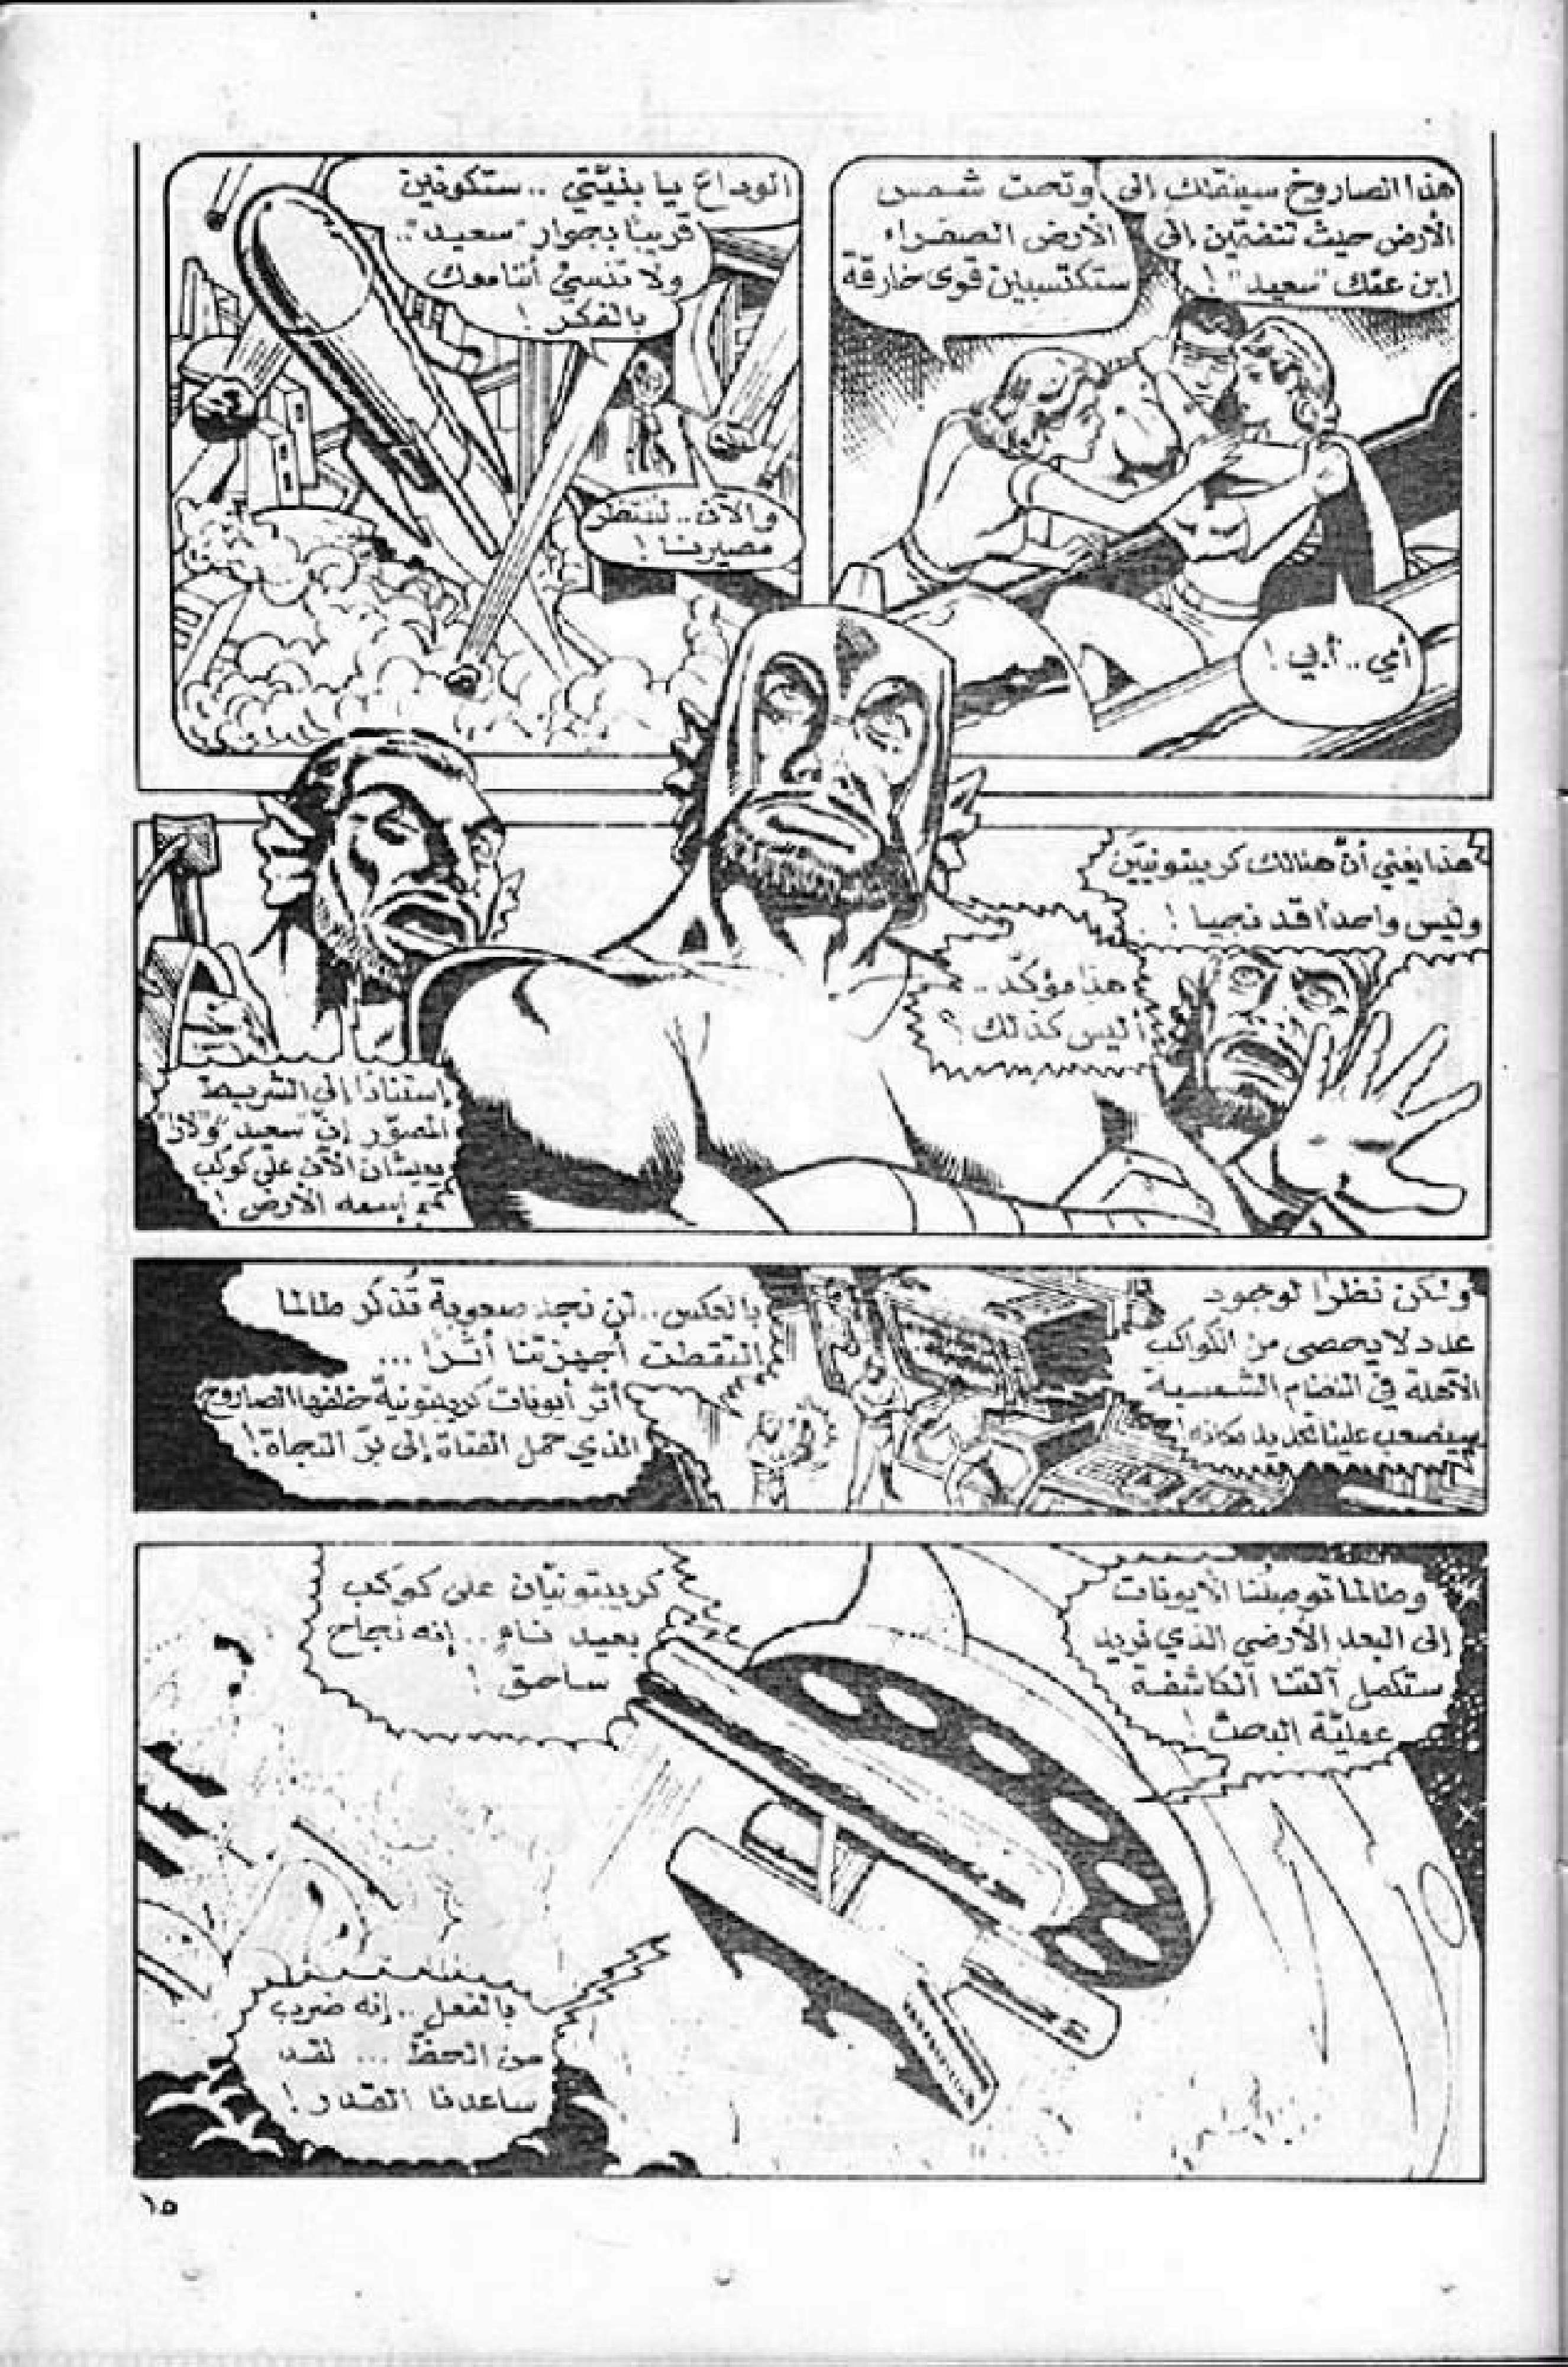 هذا الصاروخ سينقلك إلى
الأرض حيث تنضمّين إلى
ابن عمّك "سعيد"!
وتحت شمس
الأرض الصفراء
ستكتسبين قوى خارقة
أمي.. أبي!
الوداع يا بنيّتي.. ستكونين
قريبًا بجوار "سعيد"..
ولا تنسَيْ أننا معك
بالفكر!
والآن.. لننتظر
مصيرنا!
هذا يعني أنّ هنالك كريبتونيّين
وليس واحدًا قد نجيا!
هذا مؤكّد..
أليس كذلك؟
إستنادًا إلى الشريط
المصوّر إنّ "سعيد" و"لارا"
يعيشان الآن على كوكب
إسمه الأرض!
ولكن نظرًا لوجود
عدد لا يحصى من الكواكب
الآهلة في النظام الشمسية
سيصعب علينا تحديد مكانه!
بالعكس.. لن نجد صعوبة تُذكر طالما
التقطت أجهزتنا أثرًا...
أثر أيونات كريبتونية خلفها الصاروخ
الذي حمل الفتاة إلى برّ النجاة!
وطالما توصِلُنا الأيونات
إلى البعد الأرضي الذي نريد
ستكمل آلتنا الكاشفة
عمليّة البحث!
كريبتونيّان على كوكب
بعيد ناءٍ.. إنه نجاح
ساحق!
بالفعل.. إنه ضرب
من الحظّ... لقد
ساعدنا القدر!
١٥